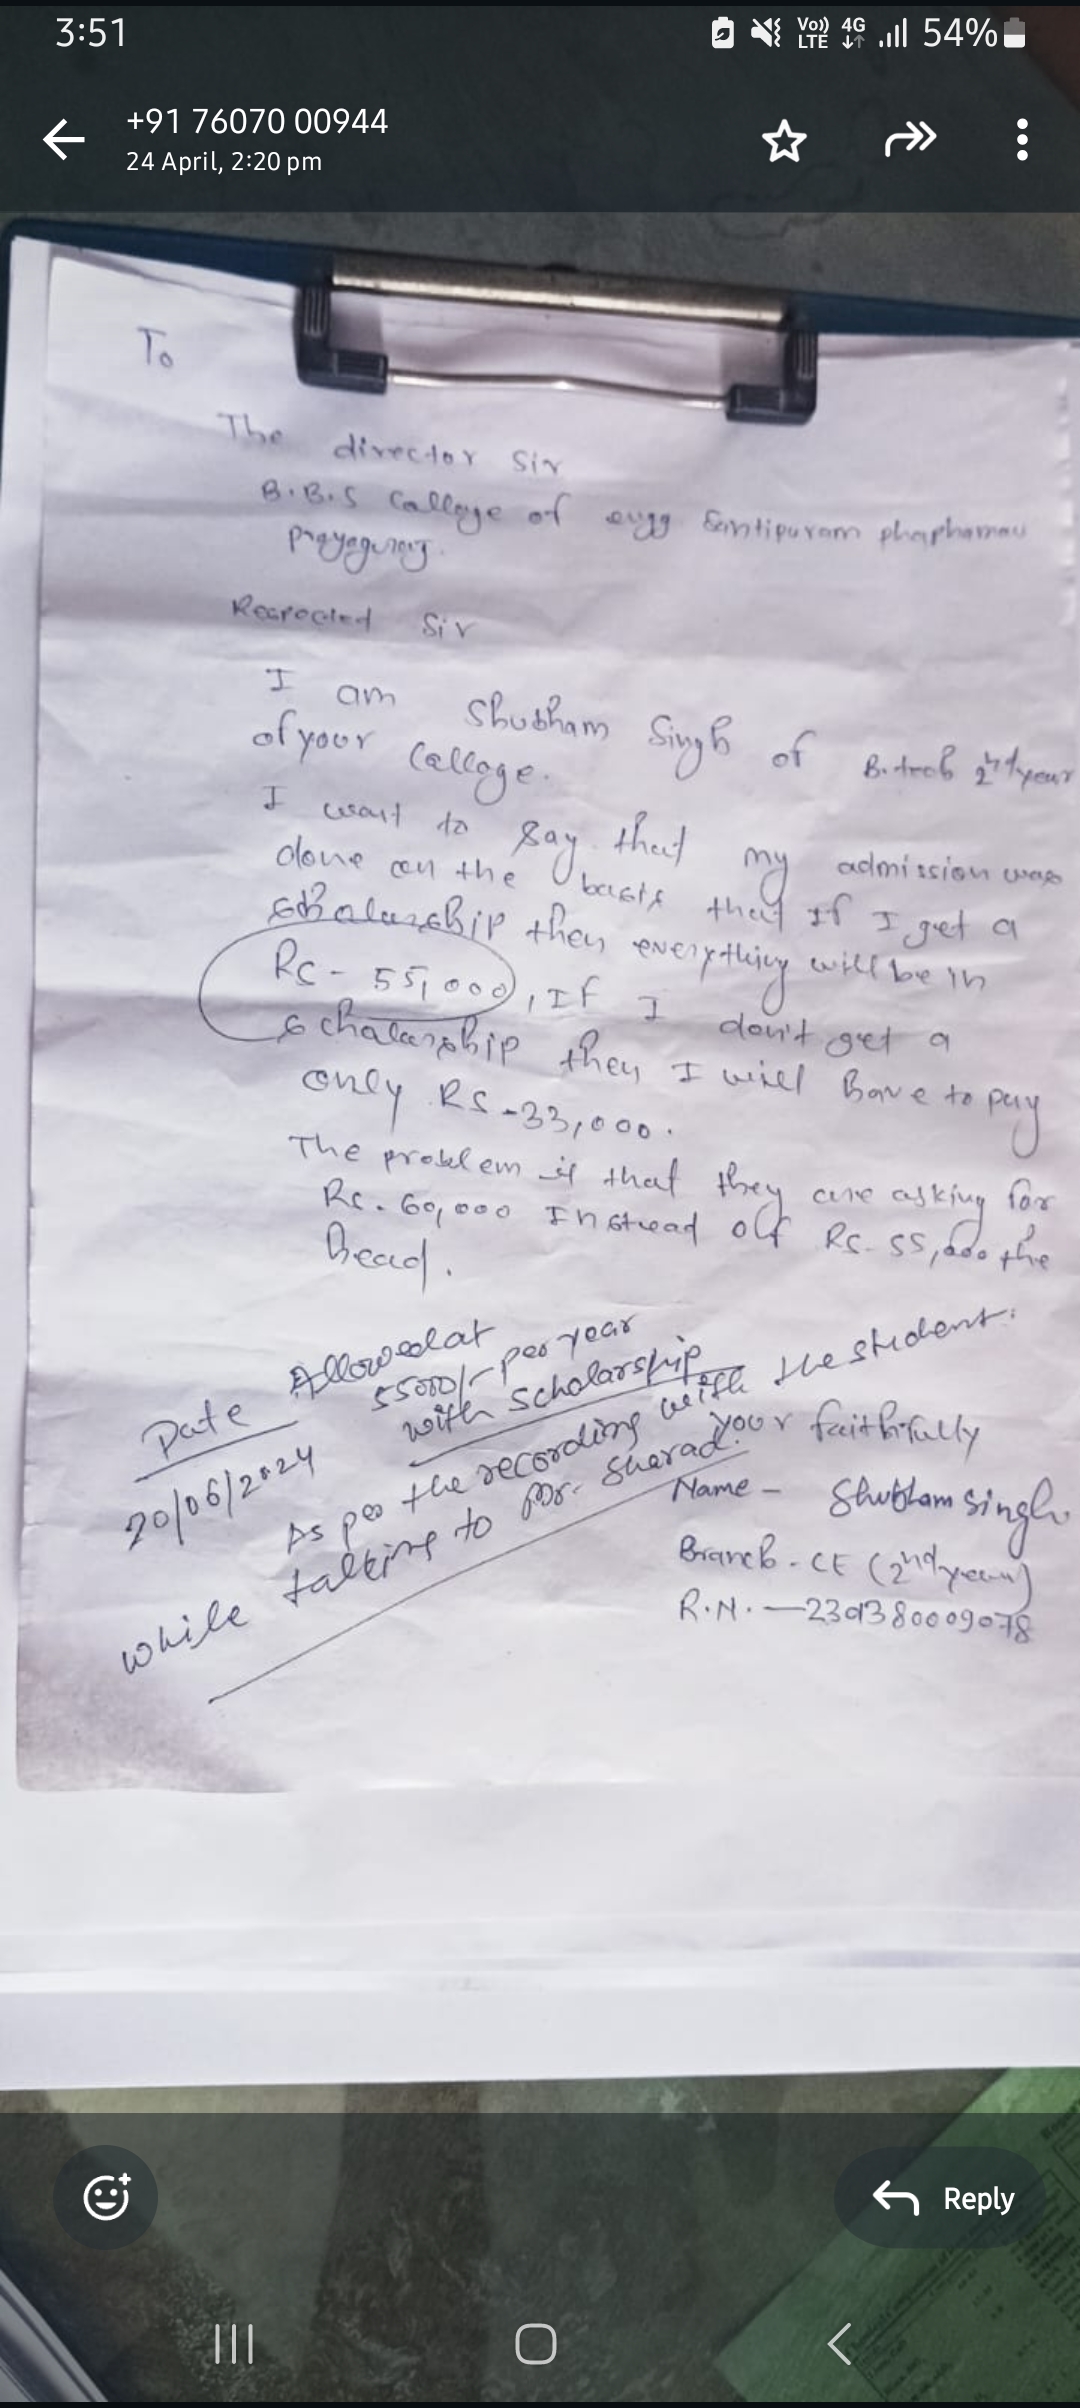 3:51
Vo)) LTE 4G 54%
+91 76070 00944
24 April, 2:20 pm
To
The director Sir
B.B.S Callage of engg Santipuram phaphamau
prayaguraj.
Respected Sir
I am Shubham Singh of B.tech 2nd year
of your Callage.
I want to say that my admission was
done on the basis that If I get a
scholarship then everything will be in
Rs - 55,000, If I don't get a
scholarship then I will have to pay
only Rs -33,000.
The problem is that they are asking for
Rs. 60,000 Instead off Rs. 55,000 the
head.
Allowed at
55000/- per year
with scholarship
As per the recording with the student
while talking to Mr. Sharad.
Date
20/06/2024
your faithfully
Name - Shubham Singh
Branch - CE (2nd year)
R.N. - 2301380009078
Reply